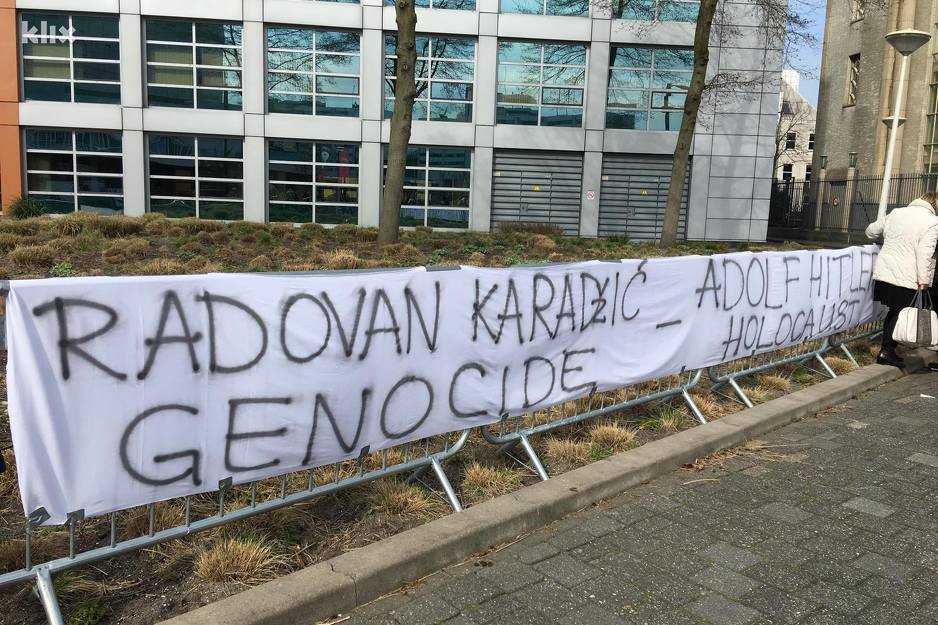 klix
RADOVAN KARADŽIĆ – ADOLF HITLER
GENOCIDE HOLOCAUST